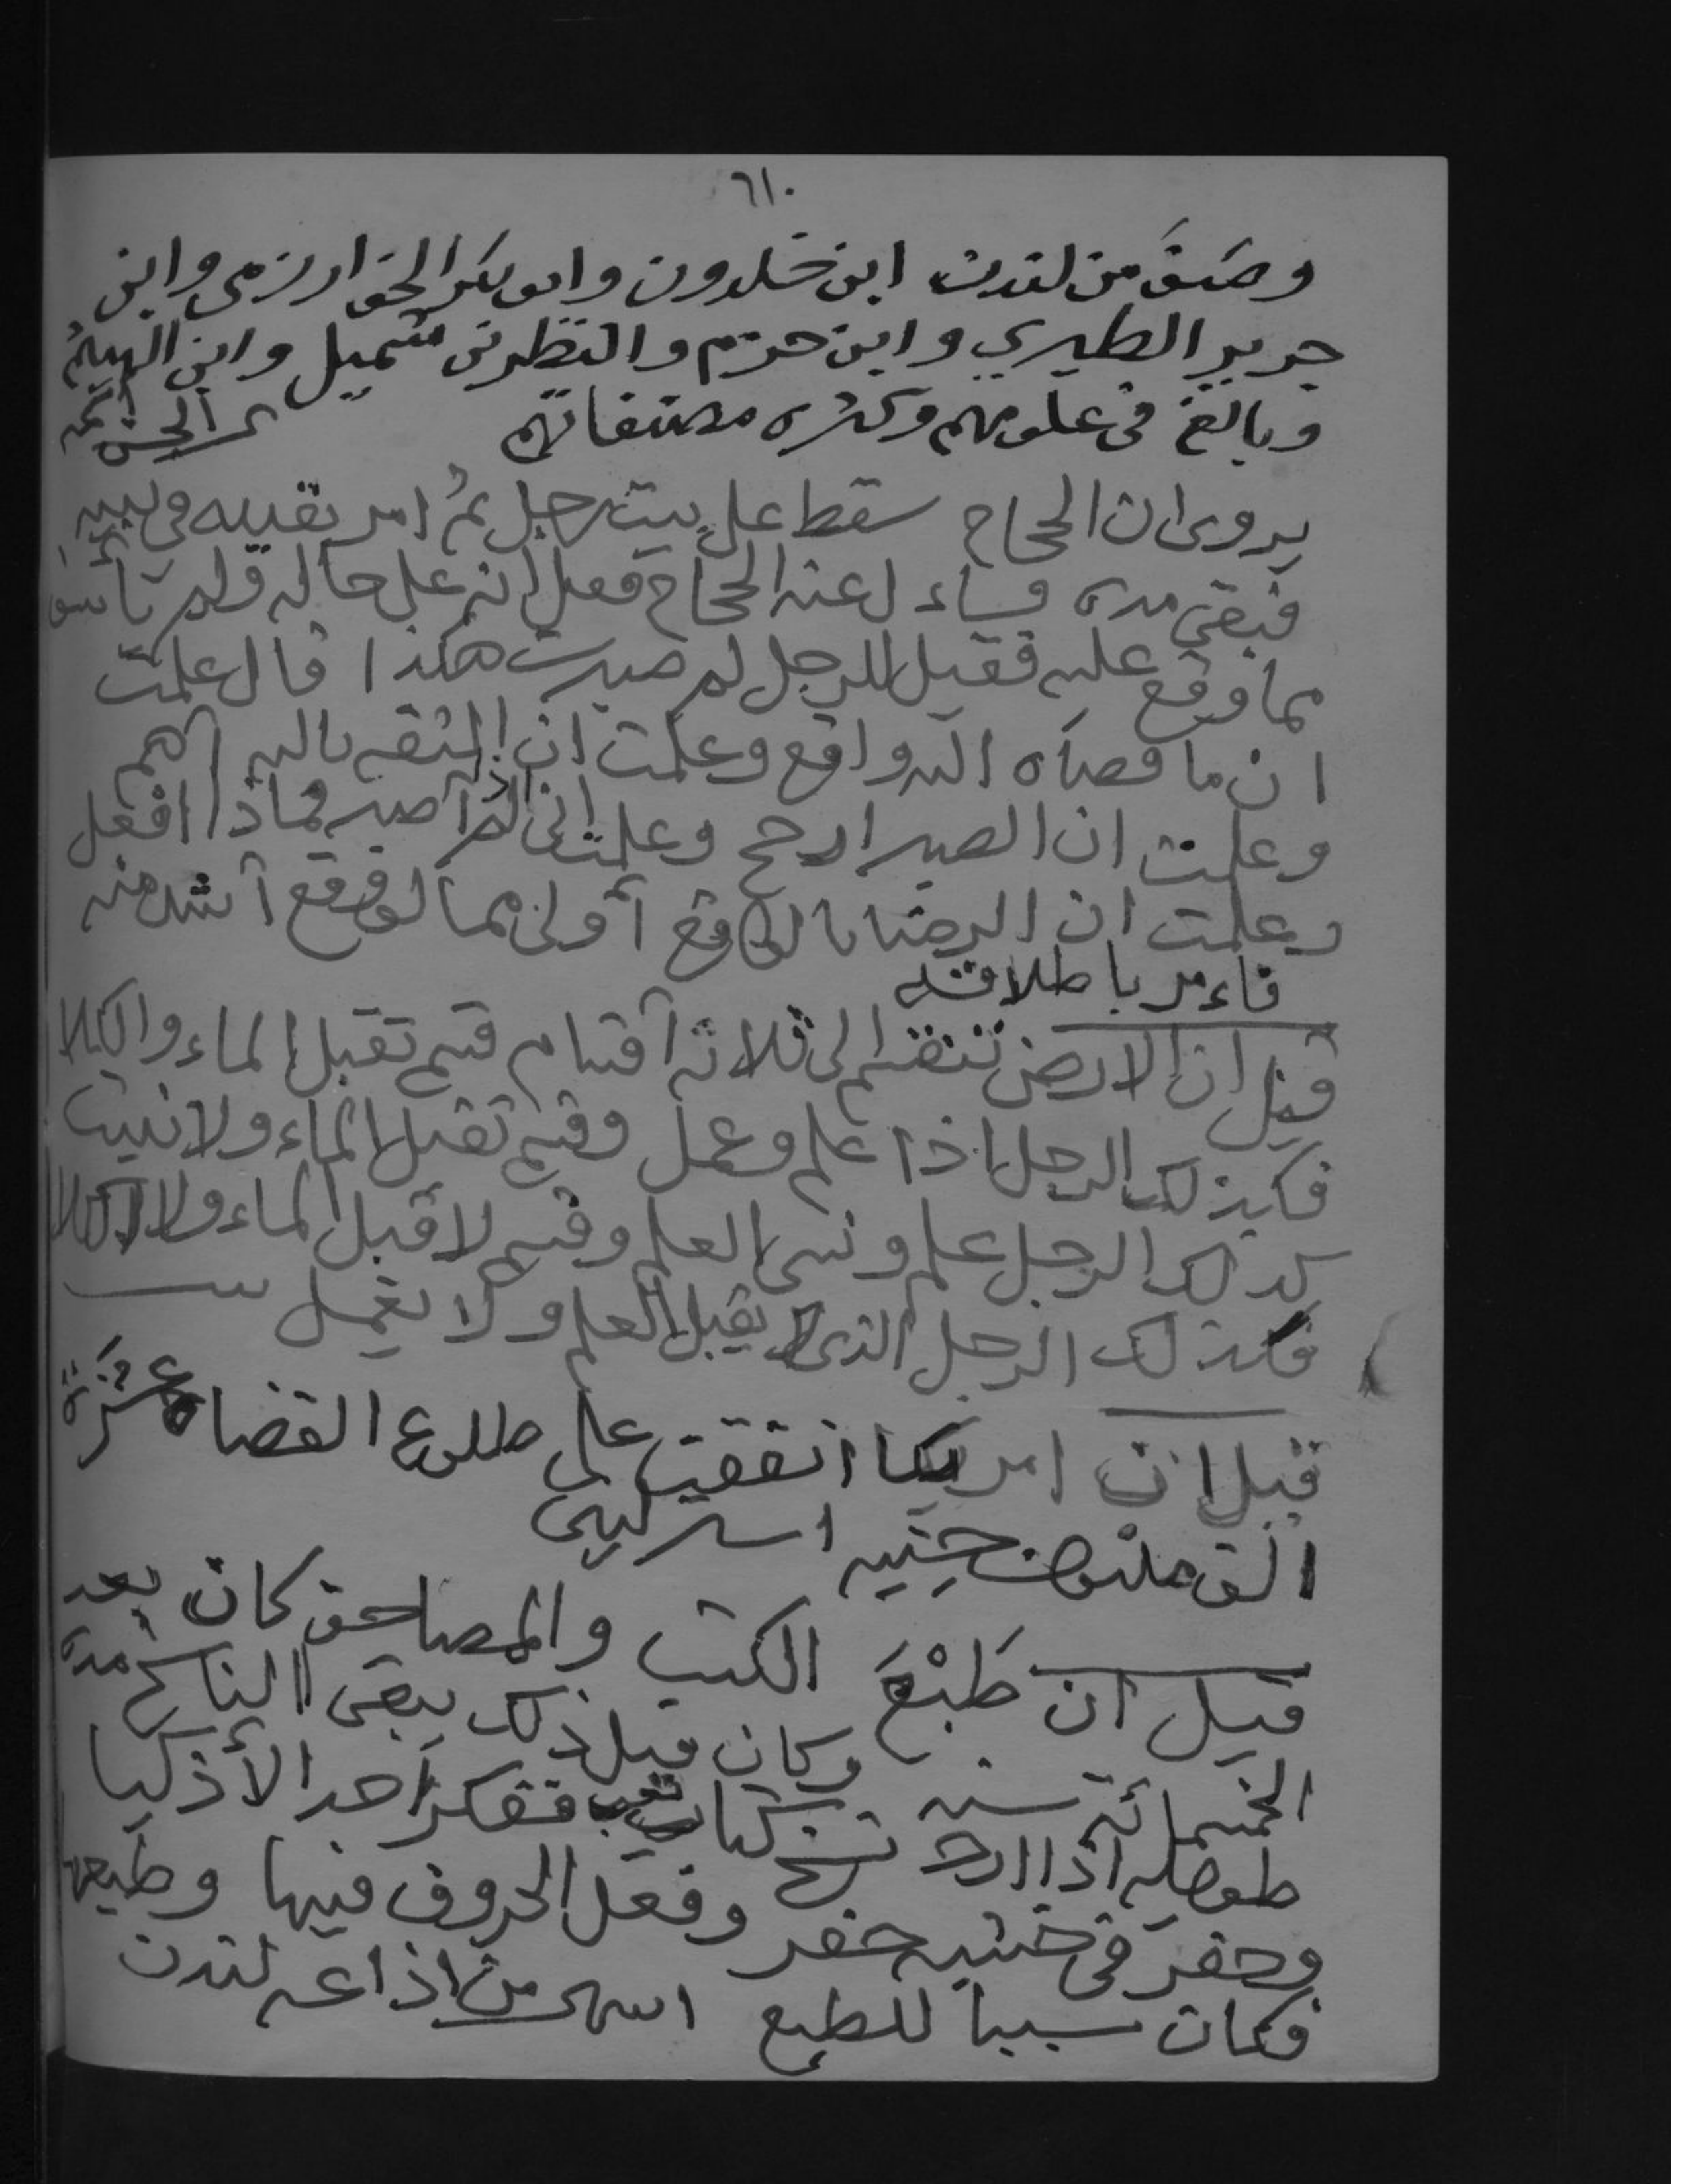 ٦١٠
وصنف من لندن ابن خلدون وابو بكر الخوارزمي وابن
جرير الطبري وابن حزم والنظر بن شميل وابن الهيثم
وبالغ في علومهم وكثره مصنفاتهم
يروى ان الحجاج سقط على بيت رجل ثم امر بقيده في
فبقي مده وساءل عنه الحجاج فعل انه على حاله ولم تأسف
مما وقع عليه فقيل للرجل لم صبرت هكذا قال علمت
ان ما قضاه الله واقع وعلمت ان الثقه بالله أهم
وعلمت ان الصبر ارجح وعلمت اني اذا لم أصبر فماذا افعل
وعلمت ان الرضا بالواقع أولى مما لو وقع أشد منه
فاءمر باطلاقه
قيل ان الارض تنقسم الى ثلاثه أقسام قسم تقبل الماء والكلا
فكذلك الرجل اذا علم وعمل وقسم تقبل الماء ولا تنبت
كذلك الرجل علم ونسى العلم وقسم لا تقبل الماء ولا الكلا
فكذلك الرجل الذي لا يقبل العلم ولا يعمل
قيل ان امريكا انفقت على طلوع الفضاء عشرة
الف مليون جنيه استرليني
قيل ان طَبْعَ الكتب والمصاحف كان بعد
الخمسمائة سنه وكان قبل ذلك يبقى الناسخ مده
طويله اذا اراد نسخ كتاب ففكر أحد الأذكيا
وحفر في خشبه حفر وفعل الحروف فيها وطبعها
فكان سببا للطبع اسهل من اذاعه لندن